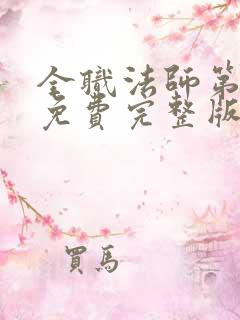 全職法師第
免費完整版
買馬